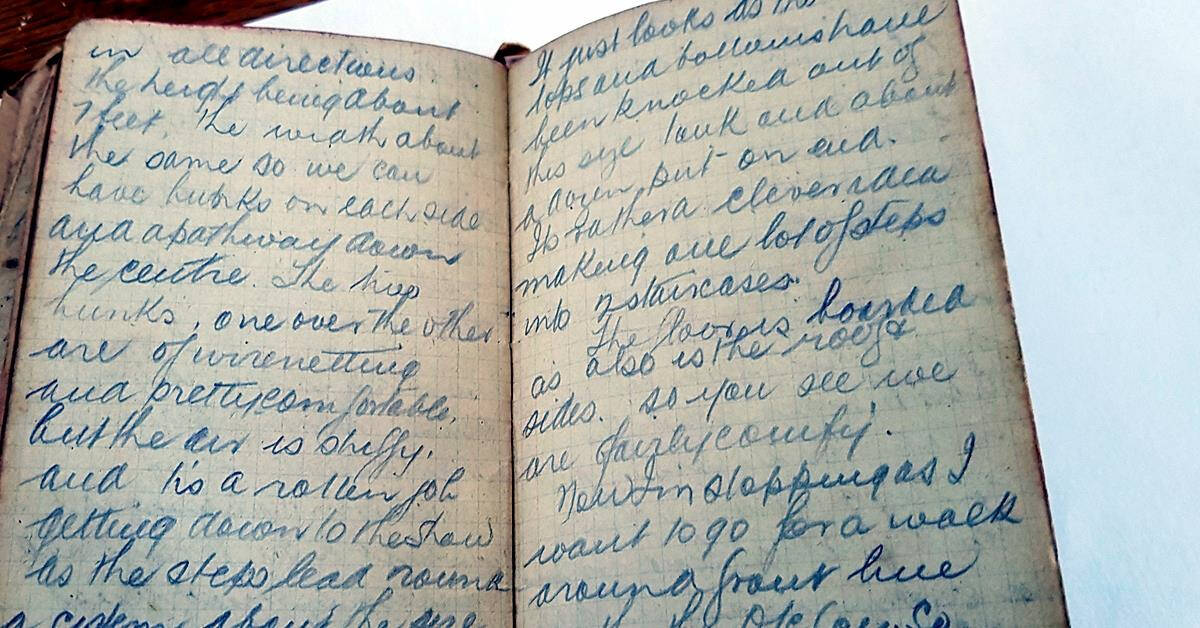 in all directions.
the height being about
7 feet. The width about
the same so we can
have bunks on each side
and a pathway down
the centre. The two
bunks, one over the other
are of wirenetting
and pretty comfortable,
but the air is stuffy.
and its a rotten job
getting down to the show
as the steps lead round
a cistern about the size
It just looks as the
tops and bottoms have
been knocked out of
this size tank and about
a dozen put on end.
Its rather a clever idea
making one lot of steps
into 2 staircases.
The floor is boarded
as also is the roof &
sides. so you see we
are fairly comfy.
Now I'm stopping as I
want to go for a walk
around front line